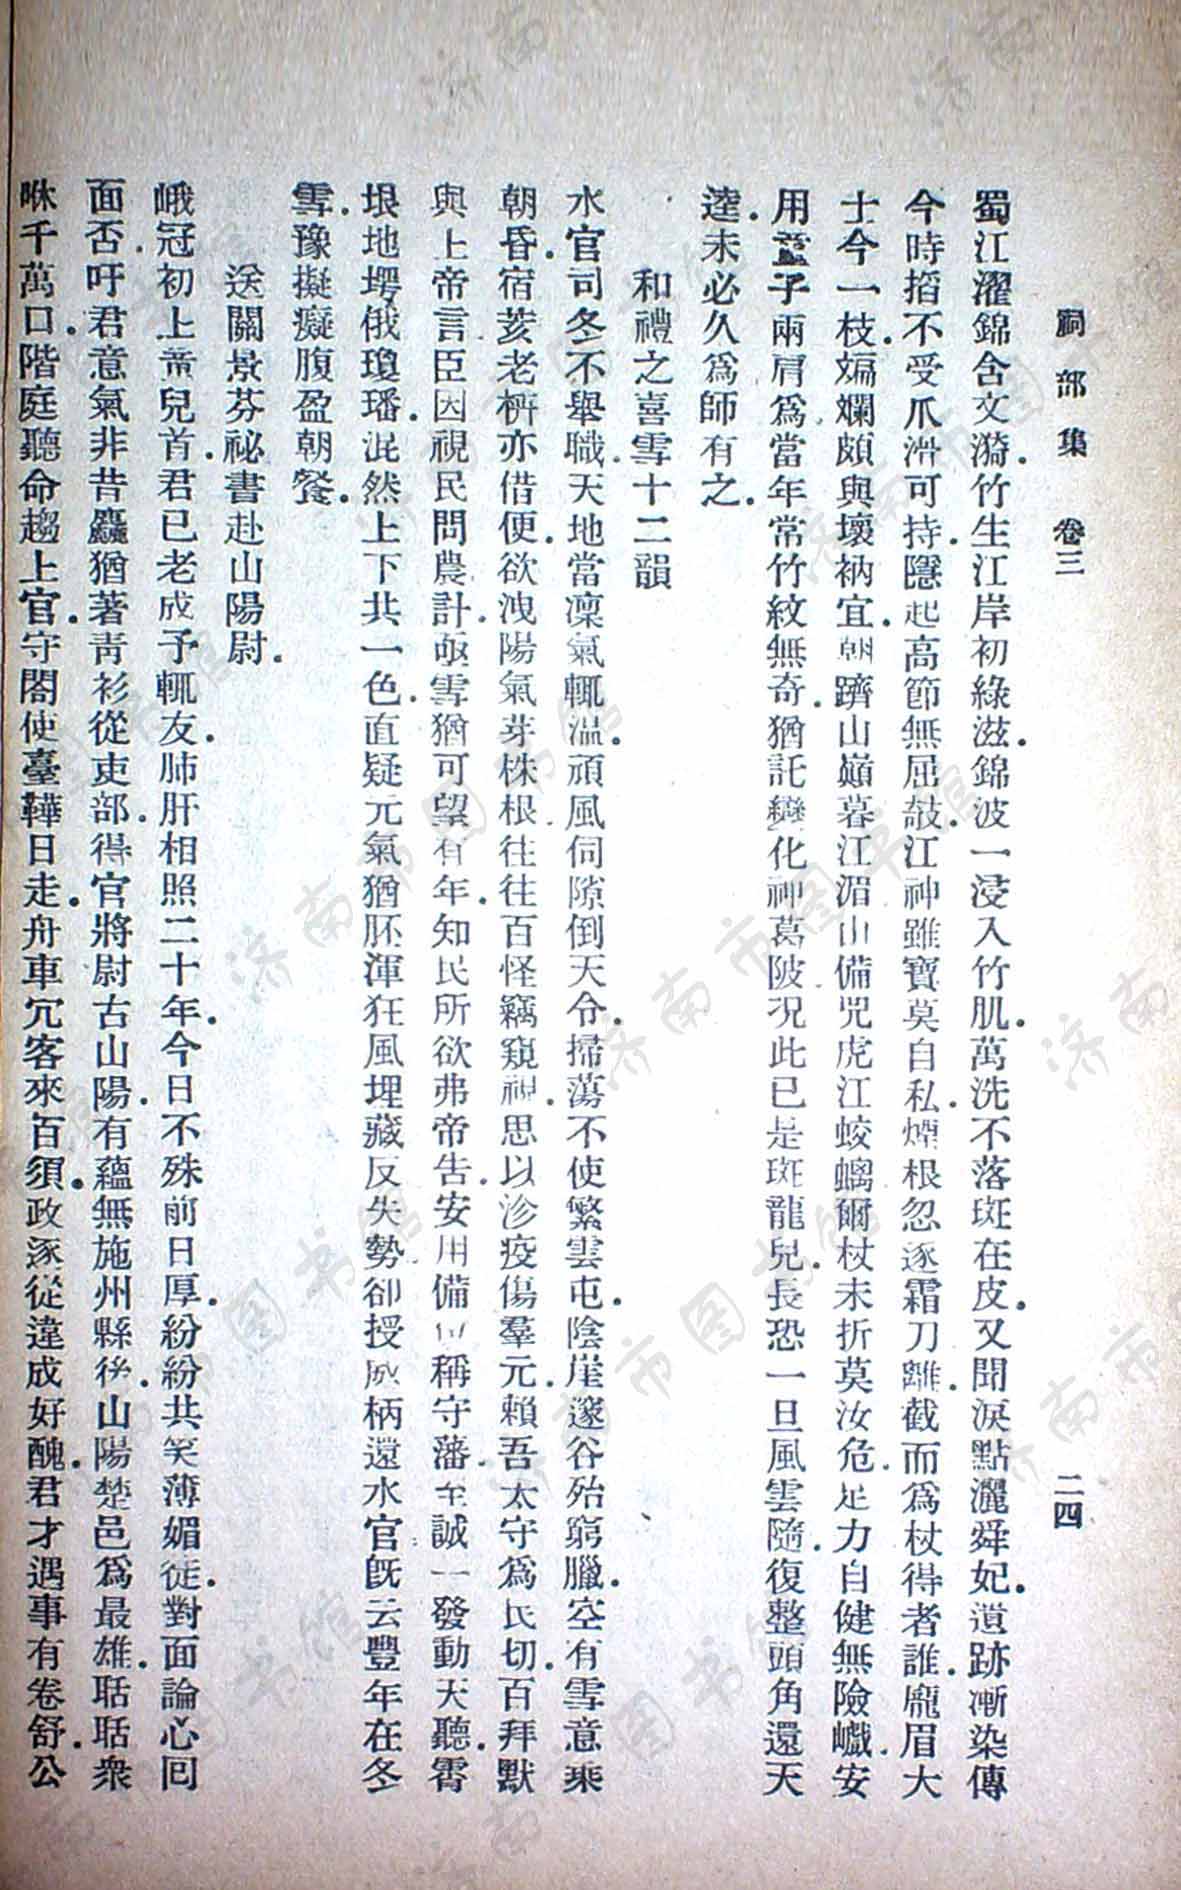 祠部集　卷三　二四
蜀江濯錦含文漪．竹生江岸初綠滋．錦波一浸入竹肌．萬洗不落斑在皮．又聞淚點灑舜妃．遺跡漸染傳
今時．搯不受爪滑可持．隱起高節無屈攲．江神雖寶莫自私．煙根忽逐霜刀離．截而爲杖得者誰．龐眉大
士今一枝．斒斕頗與壞衲宜．朝躋山巓暮江湄．山備兕虎江蛟螭．爾杖未折莫汝危．足力自健無險巇．安
用童子兩肩爲．當年常竹紋無奇．猶託變化神葛陂．况此已是斑龍兒．長恐一旦風雲隨．復整頭角還天
逵．未必久爲師有之．
和禮之喜雪十二韻
水官司冬不舉職．天地當凜氣輒温．頑風伺隙倒天令．掃蕩不使繁雲屯．陰崖邃谷殆窮臘．空有雪意乘
朝昏．宿荄老枿亦借便．欲洩陽氣芽株根．往往百怪竊窺視．思以沴疫傷羣元．賴吾太守爲民切．百拜默
與上帝言．臣因視民問農計．亟雪猶可望有年．知民所欲弗帝告．安用備位稱守藩．至誠一發動天聽．霄
垠地堮俄瓊璠．混然上下共一色．直疑元氣猶胚渾．狂風埋藏反失勢．卻授成柄還水官．旣云豐年在冬
雪．豫擬癡腹盈朝餐．
送關景芬祕書赴山陽尉．
峨冠初上帝兒首．君已老成予輒友．肺肝相照二十年．今日不殊前日厚．紛紛共笑薄媚徒．對面論心回
面否．吁君意氣非昔麤．猶著靑衫從吏部．得官將尉古山陽．有蘊無施州縣後．山陽楚邑爲最雄．聒聒衆
咻千萬口．階庭聽命趨上官．守閤使臺鞾日走．舟車冗客來百須．政逐從違成好醜．君才遇事有卷舒．公